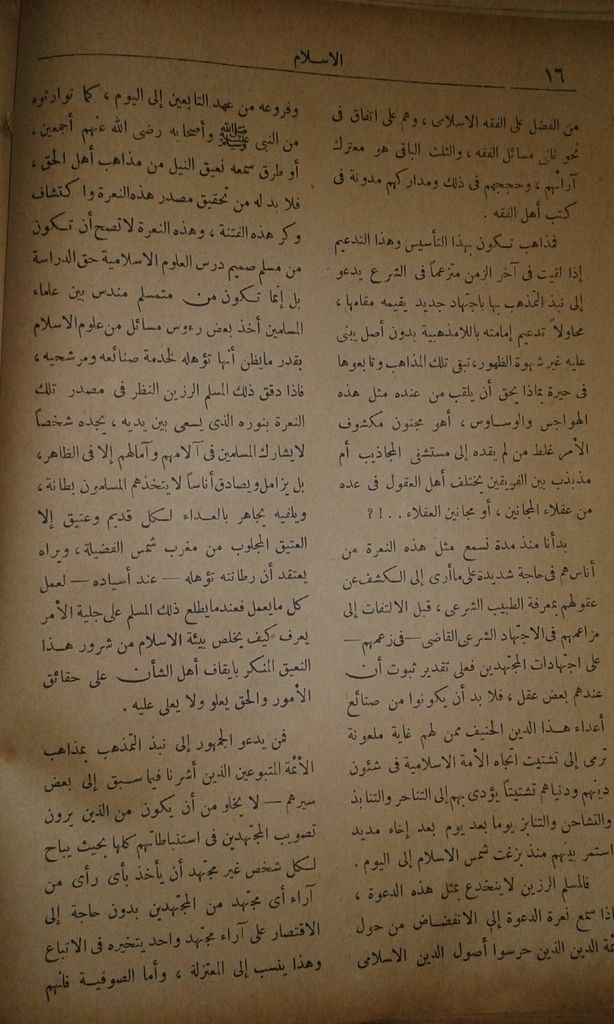 ١٦
الاسلام
من الفضل على الفقه الاسلامى ، وهم على اتفاق فى
نحو ثلثى مسائل الفقه ، والثلث الباقى هو معترك
آرائهم ، وحججهم فى ذلك ومداركهم مدونة فى
كتب أهل الفقه .
فمذاهب تكون بهذا التأسيس وهذا التدعيم
إذا لقيت فى آخر الزمن متزعماً فى الشرع يدعو
إلى نبذ التمذهب بها باجتهاد جديد يقيمه مقامها ،
محاولاً تدعيم إمامته باللامذهبية بدون أصل يبنى
عليه غير شهوة الظهور، تبقى تلك المذاهب وتابعوها
فى حيرة بماذا يحق أن يلقب من عنده مثل هذه
الهواجس والوساوس ، أهو مجنون مكشوف
الأمر غلط من لم يقده إلى مستشفى المجاذيب أم
مذبذب بين الفريقين يختلف أهل العقول فى عده
من عقلاء المجانين ، أو مجانين العقلاء . . !؟
بدأنا منذ مدة نسمع مثل هذه النعرة من
أناس هم فى حاجة شديدة على ما أرى إلى الكشف عن
عقولهم بمعرفة الطبيب الشرعى ، قبل الالتفات إلى
مزاعمهم فى الاجتهاد الشرعى القاضى — فى زعمهم —
على اجتهادات المجتهدين فعلى تقدير ثبوت أن
عندهم بعض عقل ، فلا بد أن يكونوا من صنائع
أعداء هذا الدين الحنيف ممن لهم غاية ملعونة
ترمى إلى تشتيت اتجاه الأمة الاسلامية فى شئون
دينهم ودنياهم تشتيتاً يؤدى بهم إلى التناحر والتنابذ
والتشاحن والتنابز يوما بعد يوم بعد إخاء مديد
استمر بينهم منذ بزغت شمس الاسلام إلى اليوم .
فالمسلم الرزين لا ينخدع بمثل هذه الدعوة ،
اذا سمع نعرة الدعوة إلى الانفضاض من حول
ئمة الدين الذين حرسوا أصول الدين الاسلامى
وفروعه من عهد التابعين إلى اليوم ، كما توارثوه
من النبى ﷺ وأصحابه رضى الله عنهم أجمعين ،
أو طرق سمعه نعيق النيل من مذاهب أهل الحق ،
فلا بد له من تحقيق مصدر هذه النعرة واكتشاف
وكر هذه الفتنة ، وهذه النعرة لا تصح أن تكون
من مسلم صميم درس العلوم الاسلامية حق الدراسة
بل إنما تكون من متمسلم مندس بين علماء
المسلمين أخذ بعض رءوس مسائل من علوم الاسلام
بقدر ما يظن أنها تؤهله لخدمة صنائعه ومرشحيه ،
فاذا دقق ذلك المسلم الرزين النظر فى مصدر تلك
النعرة بنوره الذى يسعى بين يديه ، يجده شخصاً
لا يشارك المسلمين فى آلامهم وآمالهم إلا فى الظاهر ،
بل يزامل ويصادق أناساً لا يتخذهم المسلمون بطانة ،
ويلفيه يجاهر بالعداء لكل قديم وعتيق إلا
العتيق المجلوب من مغرب شمس الفضيلة ، ويراه
يعتقد أن رطانته تؤهله — عند أسياده — لعمل
كل ما يعمل فعند ما يطلع ذلك المسلم على جلية الأمر
يعرف كيف يخلص بيئة الاسلام من شرور هذا
النعيق المنكر بايقاف أهل الشأن على حقائق
الأمور والحق يعلو ولا يعلى عليه .
فمن يدعو الجمهور إلى نبذ التمذهب بمذاهب
الأئمة المتبوعين الذين أشرنا فيما سبق إلى بعض
سيرهم — لا يخلو من أن يكون من الذين يرون
تصويب المجتهدين فى استنباطاتهم كلها بحيث يباح
لكل شخص غير مجتهد أن يأخذ بأى رأى من
آراء أى مجتهد من المجتهدين بدون حاجة إلى
الاقتصار على آراء مجتهد واحد يتخيره فى الاتباع
وهذا ينسب إلى المعتزلة ، وأما الصوفية فانهم